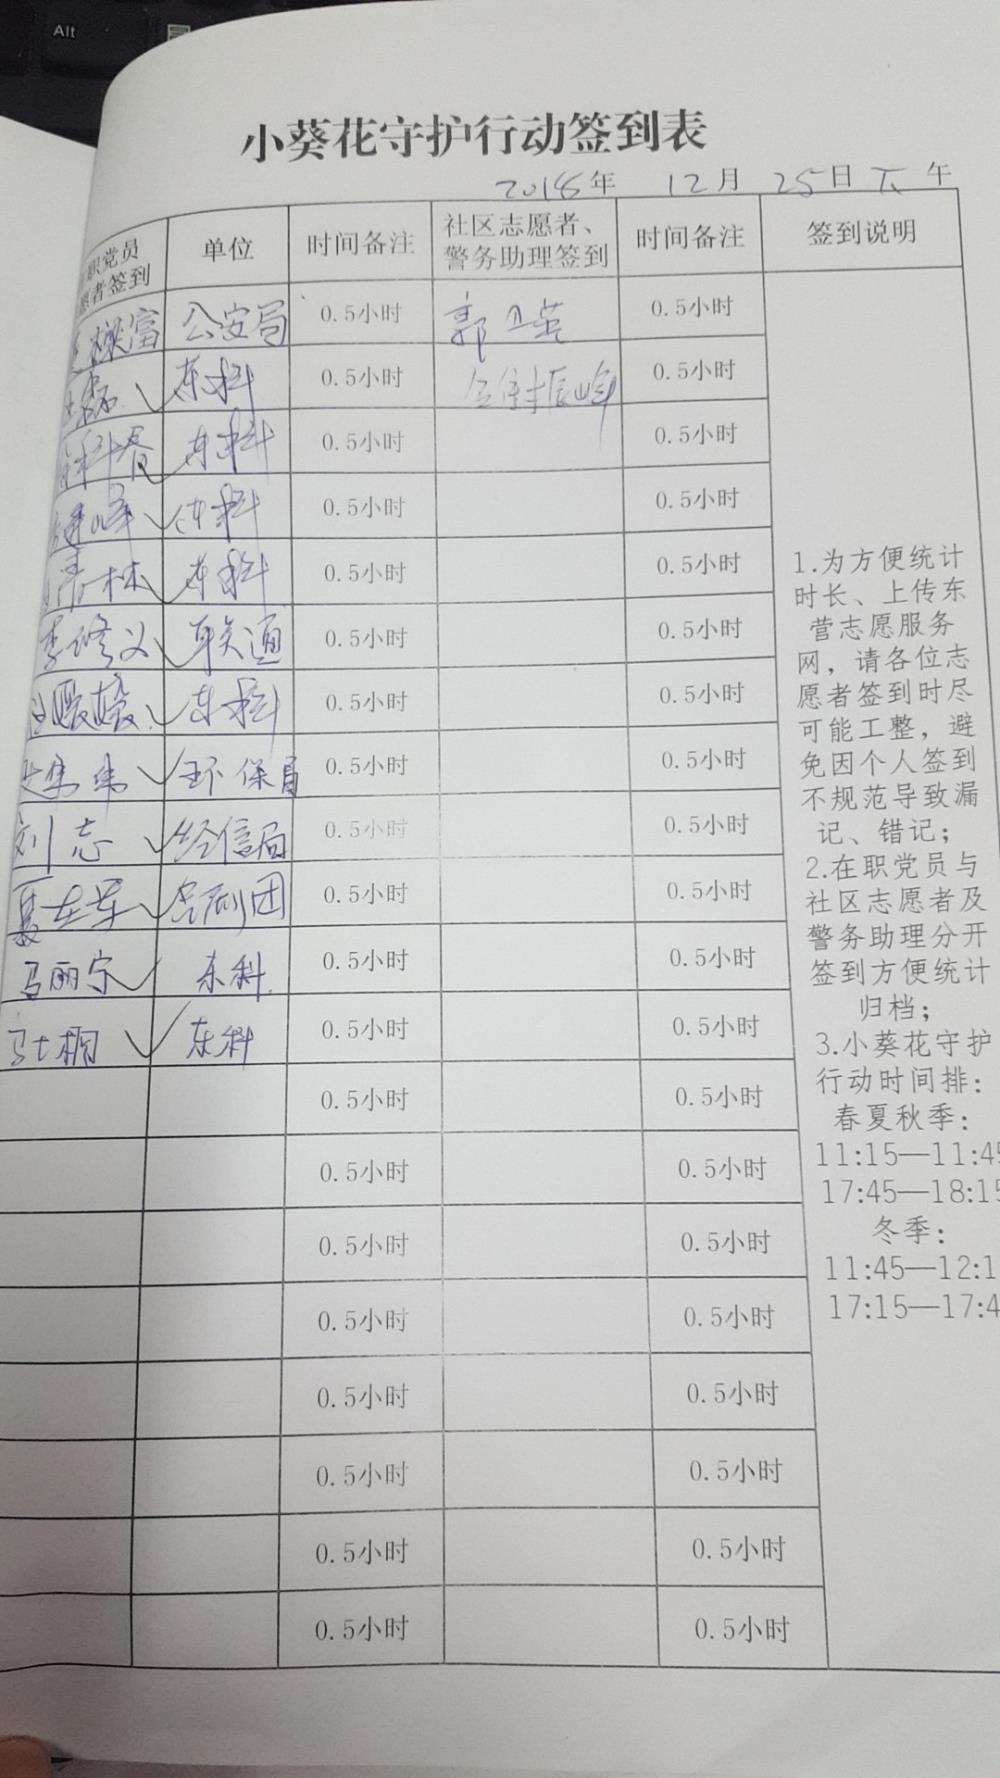 Alt
小葵花守护行动签到表
2018年 12月 25日 下午
职党员 单位 时间备注 社区志愿者、 时间备注 签到说明
愿者签到 警务助理签到
公安局 0.5小时 郭卫英 0.5小时
磊 东科 0.5小时 振峰 0.5小时
东科 0.5小时 0.5小时
峰 东科 0.5小时 0.5小时
林 东科 0.5小时 0.5小时
李修义 联通 0.5小时 0.5小时
东科 0.5小时 0.5小时
伟 环保局 0.5小时 0.5小时
刘志 经信局 0.5小时 0.5小时
夏 剧团 0.5小时 0.5小时
马丽宁 东科 0.5小时 0.5小时
马士桐 东科 0.5小时 0.5小时
0.5小时 0.5小时
0.5小时 0.5小时
0.5小时 0.5小时
0.5小时 0.5小时
0.5小时 0.5小时
0.5小时 0.5小时
0.5小时 0.5小时
0.5小时 0.5小时
1.为方便统计
时长、上传东
营志愿服务
网，请各位志
愿者签到时尽
可能工整，避
免因个人签到
不规范导致漏
记、错记；
2.在职党员与
社区志愿者及
警务助理分开
签到方便统计
归档；
3.小葵花守护
行动时间排：
春夏秋季：
11:15—11:45
17:45—18:15
冬季：
11:45—12:1
17:15—17:4